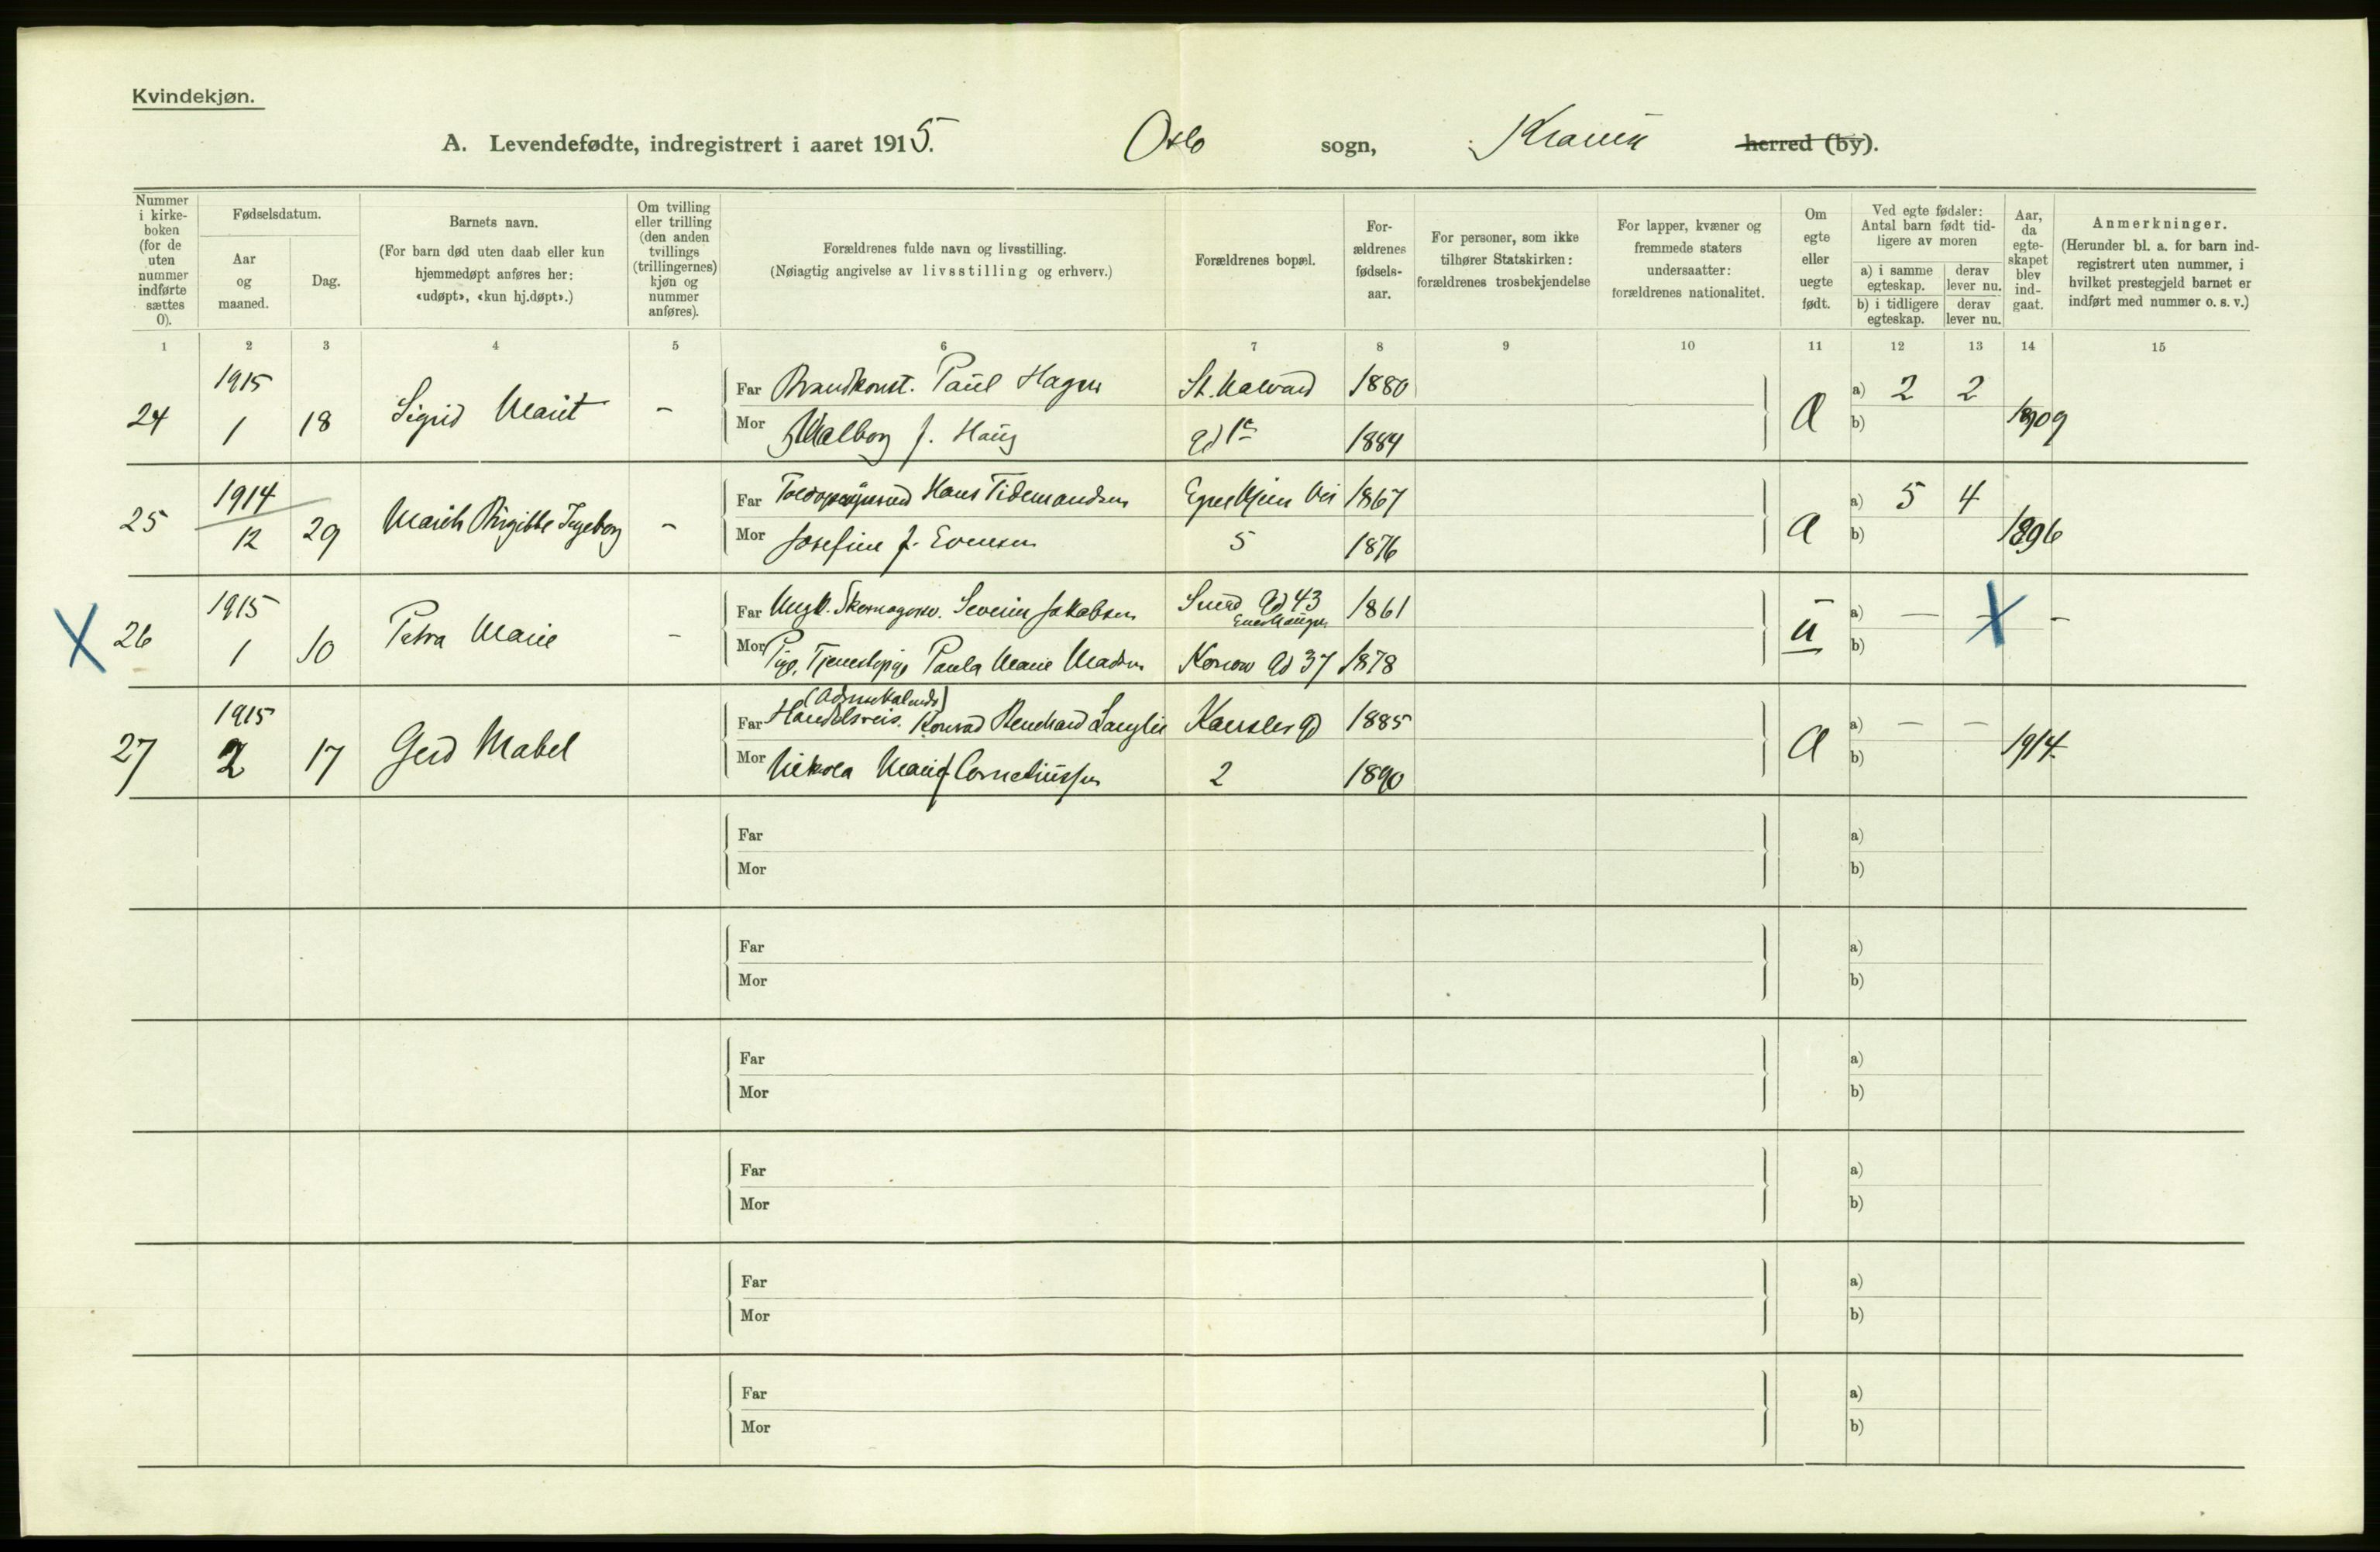 Kvindekjøn.
A. Levendefødte, indregistrert i aaret 1915. Oslo sogn, herred (by).
Nummer i kirke-boken (for de uten nummer indførte sættes 0).
Fødselsdatum.
Aar og maaned.
Dag.
Barnets navn.
(For barn død uten daab eller kun hjemmedøpt anføres her: «udøpt», «kun hj.døpt».)
Om tvilling eller trilling (den anden tvillings (trillingernes) kjøn og nummer anføres).
Forældrenes fulde navn og livsstilling.
(Nøiagtig angivelse av livsstilling og erhverv.)
Forældrenes bopæl.
For-ældrenes fødsels-aar.
For personer, som ikke tilhører Statskirken: forældrenes trosbekjendelse
For lapper, kvæner og fremmede staters undersaatter: forældrenes nationalitet.
Om egte eller uegte født.
Ved egte fødsler: Antal barn født tid-ligere av moren
a) i samme egteskap.
derav lever nu.
b) i tidligere egteskap.
derav lever nu.
Aar, da egte-skapet blev ind-gaat.
Anmerkninger.
(Herunder bl. a. for barn ind-registrert uten nummer, i hvilket prestegjeld barnet er indført med nummer o. s. v.)
1 2 3 4 5 6 7 8 9 10 11 12 13 14 15
24 1915 1 18 Sigrid Marit -
Far Brandkonst. Paul Hagen St. Halvard 1880
Mor Valborg f. Haug gd 1c 1884
a a) 2 2 b) 1909
25 1914 12 29 Marit Birgitte Ingeborg -
Far Hans Tidemandsen Vei 1867
Mor Josefine f. Evensen 5 1876
a a) 5 4 b) 1896
X 26 1915 1 10 Petra Marie -
Far Ungk. Skomagersv. Severin Jakobsen Gd 43 1861
Mor Pige, Tjenestepige Paula Marie Madsen Konow Gd 37 1878
u a) — X - b)
27 1915 2 17 Gerd Mabel
Far Handelsreis. Konrad Langlie Kansler gd 1885
Mor Marie f. Corneliussen 2 1890
a a) — — b) 1914
Far a)
Mor b)
Far a)
Mor b)
Far a)
Mor b)
Far a)
Mor b)
Far a)
Mor b)
Far a)
Mor b)